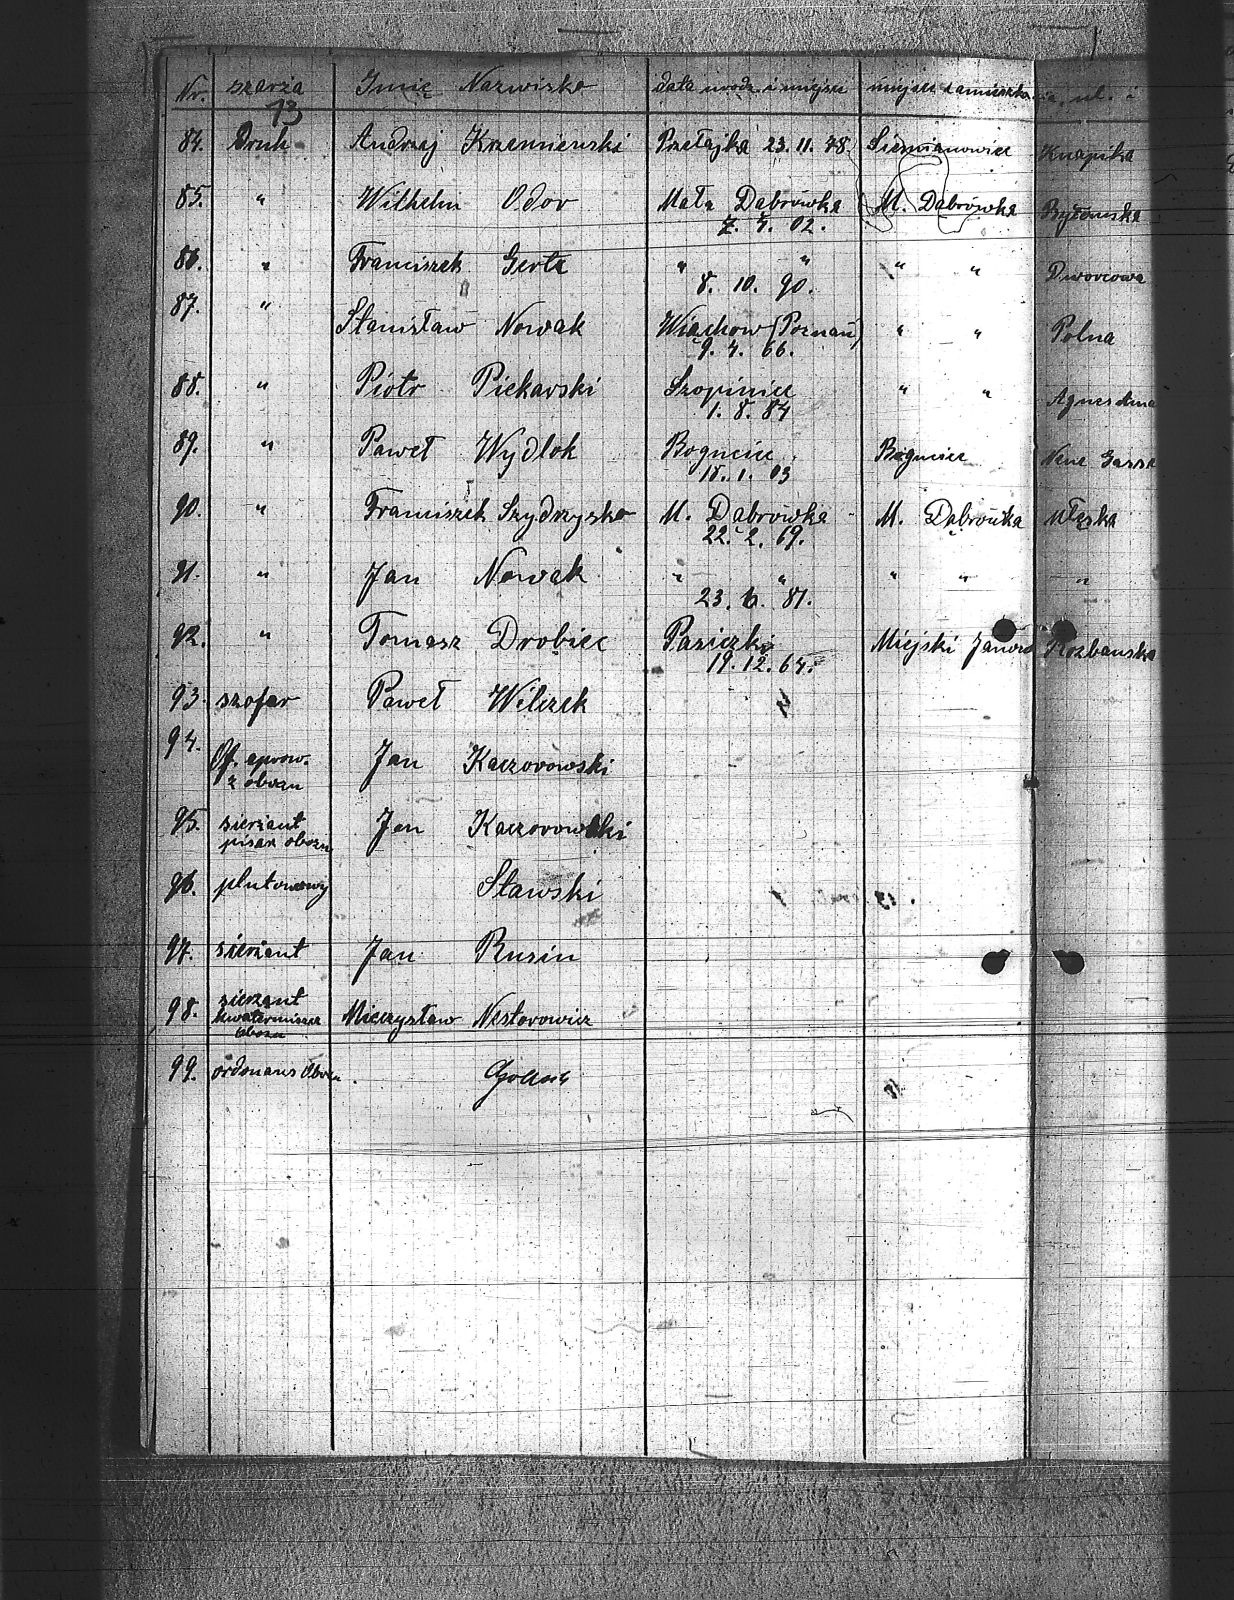 Nr. szarża Imię Nazwisko data urodz. i miejsce miejsce zamieszkania, ul. i
13
84. Druh Andrzej Krzemienski Przełajka 23. 11. 78. Siemianowice Knapika
85. " Wilhelm Odor Mała Dąbrówka M. Dąbrówka Bytomska
7. 4. 02.
86. " Franciszek Gerta " " " " Dworcowa
8. 10. 90.
87. " Stanisław Nowak Wiąchow (Poznań) " " Polna
9. 4. 66.
88. " Piotr Piekarski Szopinice " "
1. 8. 84
89. " Paweł Wydlok Bogucice Bogucice
18. 1. 03
90. " Franciszek Szydrzysko M. Dąbrowka M. Dąbrówka Męska
22. 2. 69.
91. " Jan Nowak " " " " "
23. 6. 81.
92. " Tomasz Drobiec Pasieczki Miejski Janow Rozbarska
19. 12. 64.
93. szofer Paweł Wilczek
94. Of. aprow. Jan Kaczorowski
z obozu
95. sierżant Jan Kaczorowski
pisarz obozu
96. plutonowy Sławski
97. sierżant Jan Rusin
98. sierżant Mieczysław Nestorowicz
kwatermistrz
obozu
99. ordonans obozu